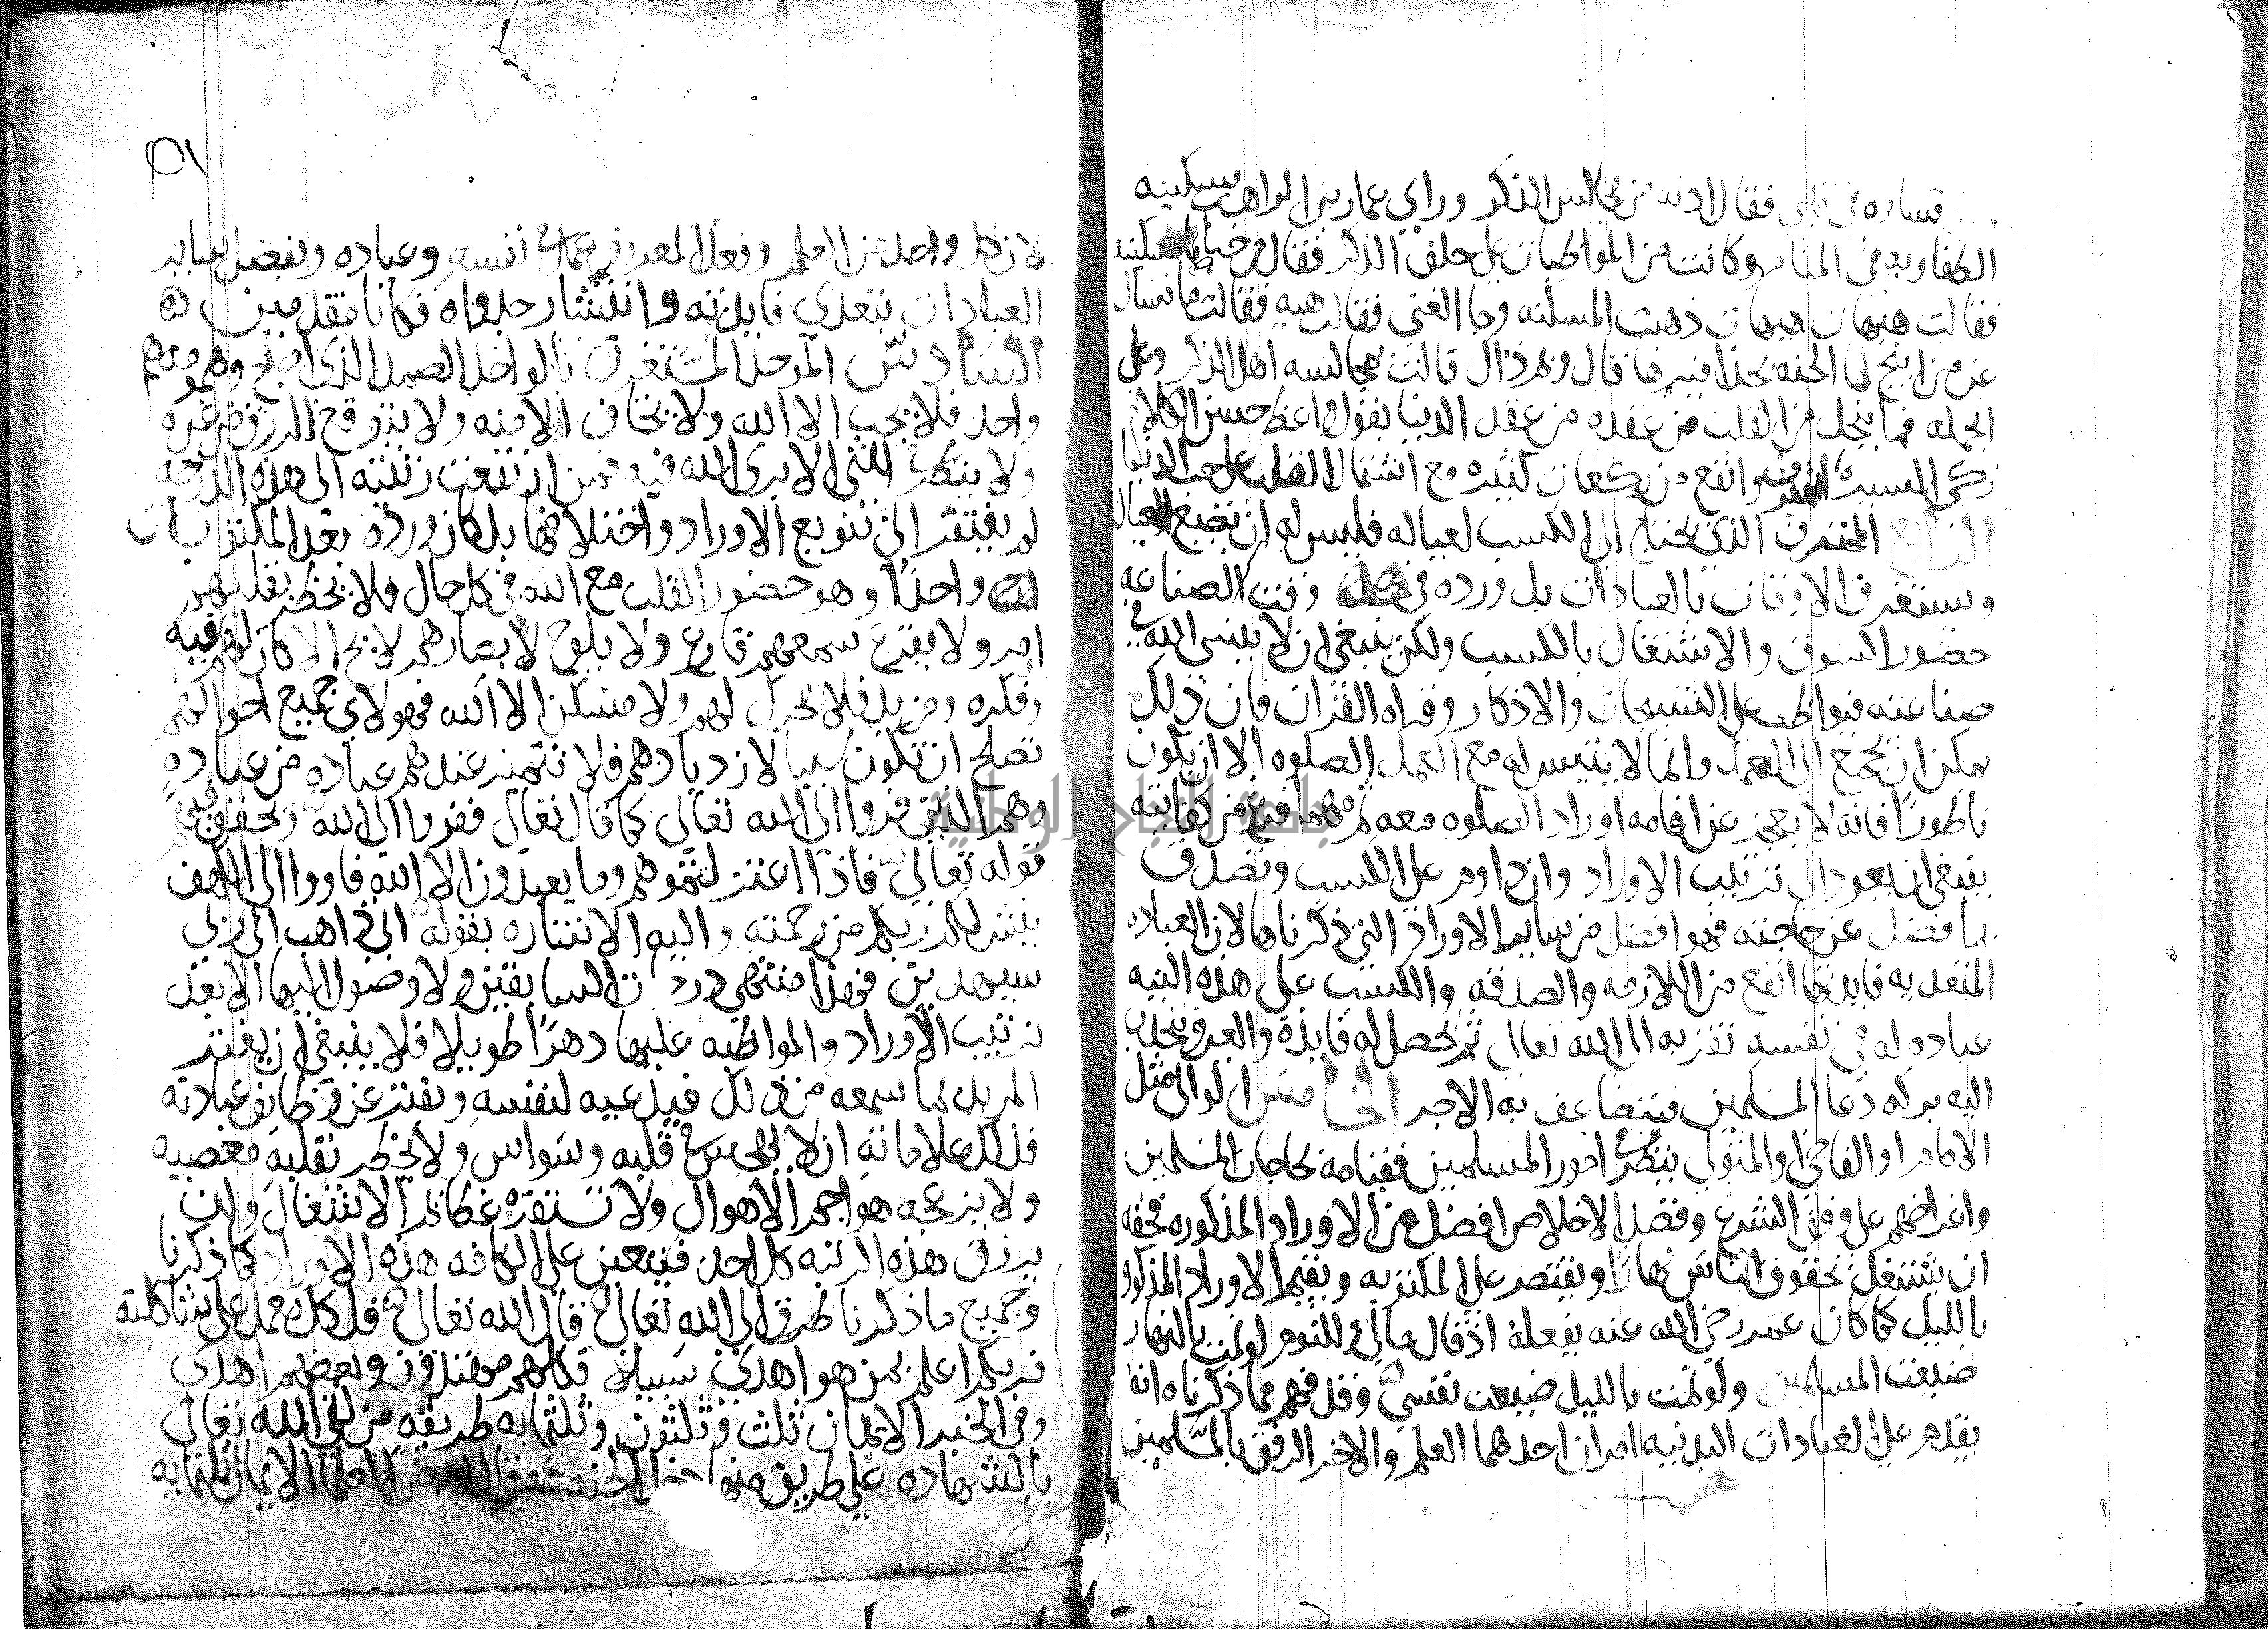 قساوه في قلبي فقال ادنه من مجالس الذكر وراي عمار بن الراهب مسكينه
الطفاويه في المنام وكانت من المواظبات على حلق الذكر فقال مرحبا يا مسكينه
فقالت هيهات هيهات ذهبت المسكنه وجا الغنى فقال هيه فقالت ما تسال
عن من ابيح لها الجنه بحذافيرها قال وبم ذاك قالت بمجالسه اهل الذكر وعلى
الجمله فما ينحل من القلب من عقده من عقد الدنيا بقول واعظ حسن الكلام
زكي السيره اشرف وانفع من ركعات كثيره مع اشتمال القلب على حب الدنيا
الرابع المحترف الذي يحتاج الى الكسب لعياله فليس له ان يضيع العيال
ويستغرق الاوقات بالعبادات بل ورده في وقت الصناعه
حضور السوق والاشتغال بالكسب ولكن ينبغي ان لا ينسى الله في
صناعته فيواظب على التسبيحات والاذكار وقراه القران فان ذلك
يمكن ان يجمع الى العمل وانما لا يتيسر له مع العمل الصلوه الا ان يكون
ناطورا فانه لا يعجز عن اقامه اوراد الصلوه معه ثم مهما فرغ من كفايته
ينبغي ان يعود الى ترتيب الاوراد وان داوم على الكسب وتصدق
بما فضل عن حاجته فهو افضل من ساير الاوراد التي ذكرناها لان العباده
المتعديه فايدتها انفع من اللازمه والصدقه والكسب على هذه النيه
عباده له في نفسه تقربه الى الله تعالى ثم يحصل له فايدة والغير وينجذب
اليه بركه دعا المسلمين فيتضاعف به الاجر الخامس الوالي مثل
الامام او القاضي او المتولي ينظر في امور المسلمين فقيامه بحاجات المسلمين
واغراضهم على وفق الشرع وقصد الاخلاص افضل من الاوراد المذكوره فحقه
ان يشتغل بحقوق الناس نهارا ويقتصر على المكتوبه ويقيم الاوراد المذكوره
بالليل كما كان عمر رضي الله عنه يفعله اذ قال ما لي وللنوم لو نمت بالنهار
ضيعت المسلمين ولو نمت بالليل ضيعت نفسي وقد فهم مما ذكرناه انه
يقدم على العبادات البدنيه امران احدهما العلم والاخر الرفق بالمسلمين
٥١
لان كل واحد من العلم وفعل المعروف عمل في نفسه وعباده وتفضل ساير
العبادات بتعدي فايدته وانتشار جدواه فكانا متقدمين
السادس الموحد المستغرق بالواحد الصمد الذي اصبح وهمومه هم
واحد فلا يحب الا الله ولا يخاف الا منه ولا يتوقع الرزق من غيره
ولا ينظر في شي الا يرى الله فيه فمن ارتفعت رتبته الى هذه الدرجه
لم يفتقر الى تنويع الاوراد واختلافها بل كان ورده بعد المكتوبات
واحدا وهو حضور القلب مع الله في كل حال فلا يخطر بقلبهم
امر ولا يقرع سمعهم قارع ولا يلوح لابصارهم لايح الا كان لهم فيه
وفكره ومزيد فلا محرك لهم ولا مسكن الا الله فهولاي جميع احوالهم
تصلح ان تكون سببا لازديادهم فلا تتميز عندهم عباده من عباده
وهم الذين فروا الى الله تعالى كما قال تعالى ففروا الى الله وتحقق فيهم
قوله تعالى فاذا اعتزلتموهم وما يعبدون الا الله فاووا الى الكهف
ينشر لكم ربكم من رحمته واليه الاشاره بقوله اني ذاهب الى ربي
سيهدين فهذا منتهى درجات السابقين ولا وصول اليها الا بعد
ترتيب الاوراد والمواظبه عليها دهرا طويلا فلا ينبغي ان يغتر
المريد بما سمعه من ذلك فيدعيه لنفسه ويفتر عن وظايف عبادته
فذلك علاماته ان لا يهجس في قلبه وسواس ولا يخطر بقلبه معصيه
ولا يزعجه هواجم الاهوال ولا تستفزه عظايم الاشغال وان
يرزق هذه الرتبه كل احد فيتعين على الكافه هذه الاوراد كما ذكرنا
وجميع ما ذكرنا طرق الى الله تعالى قال الله تعالى قل كل يعمل على شاكلته
فربكم اعلم بمن هو اهدى سبيلا فكلهم مهتدون وبعضهم اهدى
وفي الخبر الايمان ثلث وثلثون وثلثمايه طريقه من لقي الله تعالى
بالشهاده على طريق منها دخل الجنه فقال بعض العلما الايمان ثلثمايه